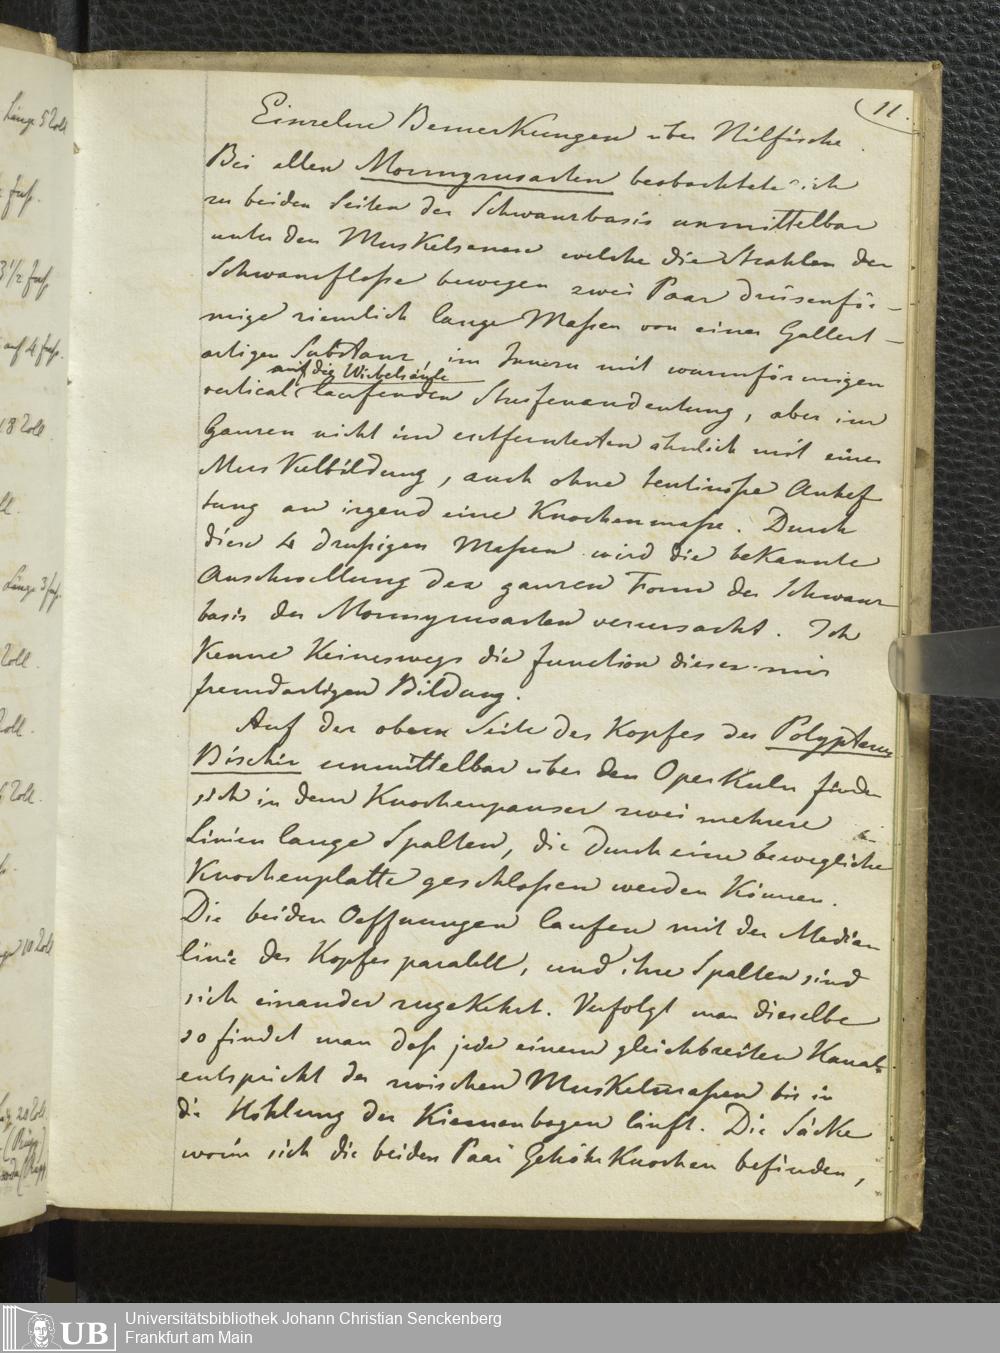 11.
Einzelne Bemerkungen über Nilfische.
Bei allen Mormyrusarten beobachtete ich
zu beiden Seiten der Schwanzbasis unmittelbar
unter den Muskelsenen welche die Strahlen der
Schwanzfloße bewegen zwei Paar drüsenför-
mige ziemlich lange Maßen von einer Gallert-
artigen Substanz, im Innern mit wurmförmigen
auf die Wirbelsäule
vertical laufenden Streifenandeutung, aber im
Ganzen nicht im entferntesten ähnlich mit einer
Muskelbildung, auch ohne tentinöse Anhef
tung an irgend eine Knochenmaße. Durch
diese 4 drußigen Maßen wird die bekannte
Anschwellung der ganzen Form der Schwanz-
basis der Mormyrusarten verursacht. Ich
Kenne Keineswegs die function dieser mir
fremdartigen Bildung.
Auf der obern Seite des Kopfes des Polypterus
Bischir unmittelbar über den Operkuln finden
sich in dem Knochenpanzer zwei mehrere
Linien lange Spalten, die durch eine bewegliche
Knochenplatte geschloßen werden Können.
Die beiden Oeffnungen laufen mit der Median
linie des Kopfes paralell, und ihre Spalten sind
sich einander zugekehrt. Verfolgt man dieselbe
so findet man daß jede einem gleichbreiten Kanal
entspricht der zwischen Muskelmaßen bis in
die Hohlung der Kiemenbogen läuft. Die Säcke
worin sich die beiden Paar GehörKnochen befinden,
Länge 5 Zoll
fuß.
3 1/2 fuß
auf 4 fuß.
18 Zoll
Länge 3 fuß.
Zoll.
Zoll.
6 Zoll.
10 Zoll
20 Zoll
(Rüpp)
(Rüpp
UB
Universitätsbibliothek Johann Christian Senckenberg
Frankfurt am Main